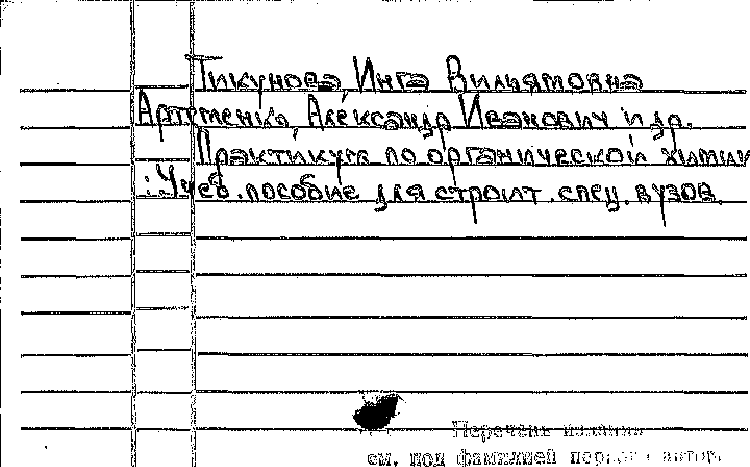 Тикунова, Инга Вильямовна
Артеменко, Александр Иванович и др.
Практикум по органической химии
: Учеб. пособие для строит. спец. вузов.
Перечень издания
см. под фамилией первого автора